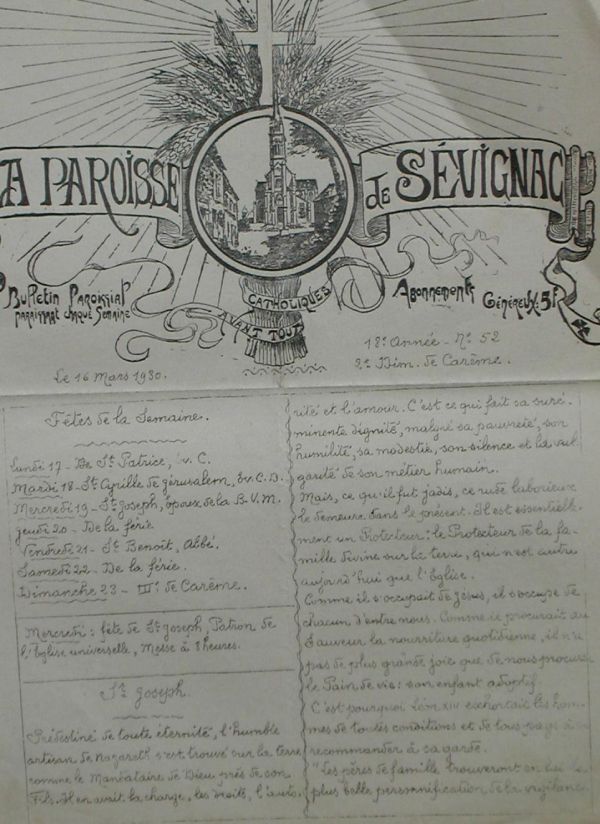 A PAROISSE de SÉVIGNAC
Bulletin Paroissial
paraissant chaque semaine
CATHOLIQUES
AVANT TOUT
Abonnements
Généreux: 5f
Le 16 Mars 1930.
18e Année - No 52
2e Dim. de Carême.
Fêtes de la Semaine.
Lundi 17 - De St Patrice, év. C.
Mardi 18 - St Cyrille de Jérusalem, év. C. D.
Mercredi 19 - St Joseph, époux de la B.V.M.
Jeudi 20 - De la férie
Vendredi 21 - St Benoît, Abbé.
Samedi 22 - De la férie.
Dimanche 23 - IIIe de Carême.
Mercredi: fête de St Joseph, Patron de
l'Église universelle, Messe à 8 heures.
St Joseph.
Prédestiné de toute éternité, l'humble
artisan de Nazareth s'est trouvé sur la terre
comme le Mandataire de Dieu près de son
Fils. Il en avait la charge, les droits, l'auto-
rité et l'amour. C'est ce qui fait sa suré-
minente dignité, malgré sa pauvreté, son
humilité, sa modestie, son silence et la vul-
garité de son métier humain.
Mais, ce qu'il fut jadis, ce rude laborieux
le demeure dans le présent. Il est essentielle-
ment un Protecteur: le Protecteur de la fa-
mille divine sur la terre, qui n'est autre
aujourd'hui que l'Église.
Comme il s'occupait de Jésus, il s'occupe de
chacun d'entre nous. Comme il procurait au
Sauveur la nourriture quotidienne, il n'a
pas de plus grande joie que de nous procurer
le Pain de vie: son enfant adoptif.
C'est pourquoi Léon XIII exhortait les hom-
mes de toutes conditions et de tous pays à se
recommander à sa garde.
"Les pères de famille trouveront en lui la
plus belle personnification de la vigilance